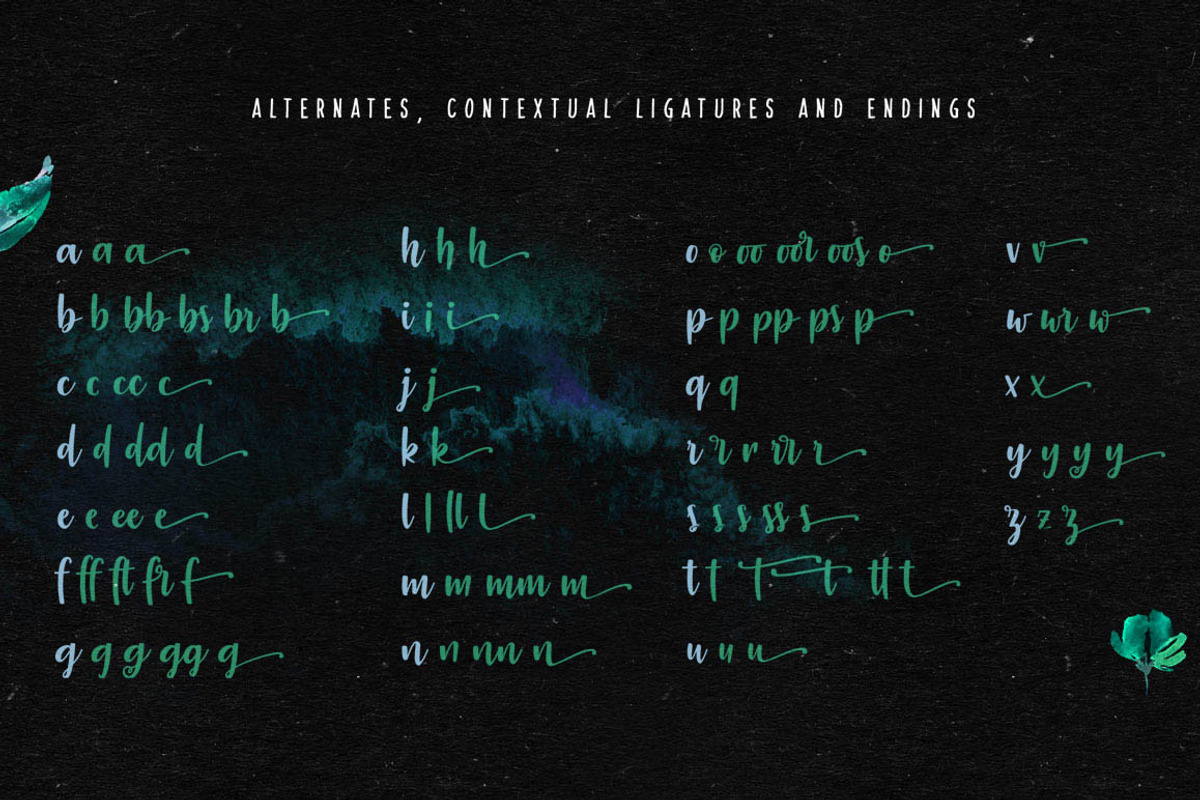 ALTERNATES, CONTEXTUAL LIGATURES AND ENDINGS
a a a
b b bb bs br b
c c cc c
d d dd d
e e ee e
f ff ft fr f
g g g gg g
h h h
i i i
j j
k k
l l ll l
m m mm m
n n nn n
o o oo oor oos o
p p pp ps p
q q
r r r rr r
s s s ss s
t t t t tt t
u u u
v v
w wr w
x x
y y y y
z z z